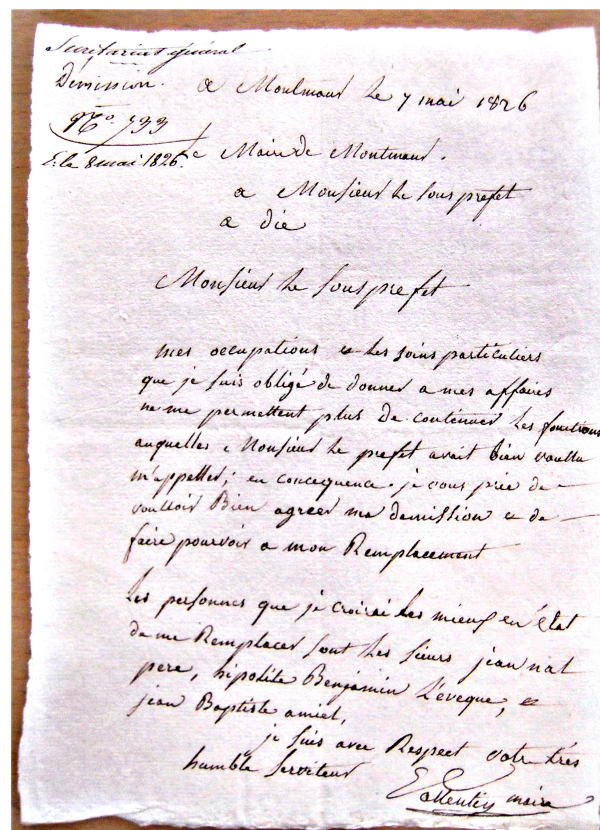 Secrétariat général
Démission.
N.o 733
E. le 8 mai 1826.
a Montmaur le 7 mai 1826
Maire de Montmaur.
a Monsieur le sous prefet
a die
Monsieur le sous prefet
mes occupations et les soins particuliers
que je suis obligé de donner a mes affaires
ne me permettent plus de continuer les fonctions
auquelles Monsieur le prefet avait bien voullu
m'appeller; en concequence je vous prie de
voulloir Bien agreer ma demission et de
faire pourvoir a mon Remplacement
Les personnes que je croirai les mieux en état
de me Remplacer sont les sieurs jean nal
pere, hipolite Benjamin Leveque, et
jean Baptiste amiel,
je suis avec Respect votre très
humble serviteur
maire